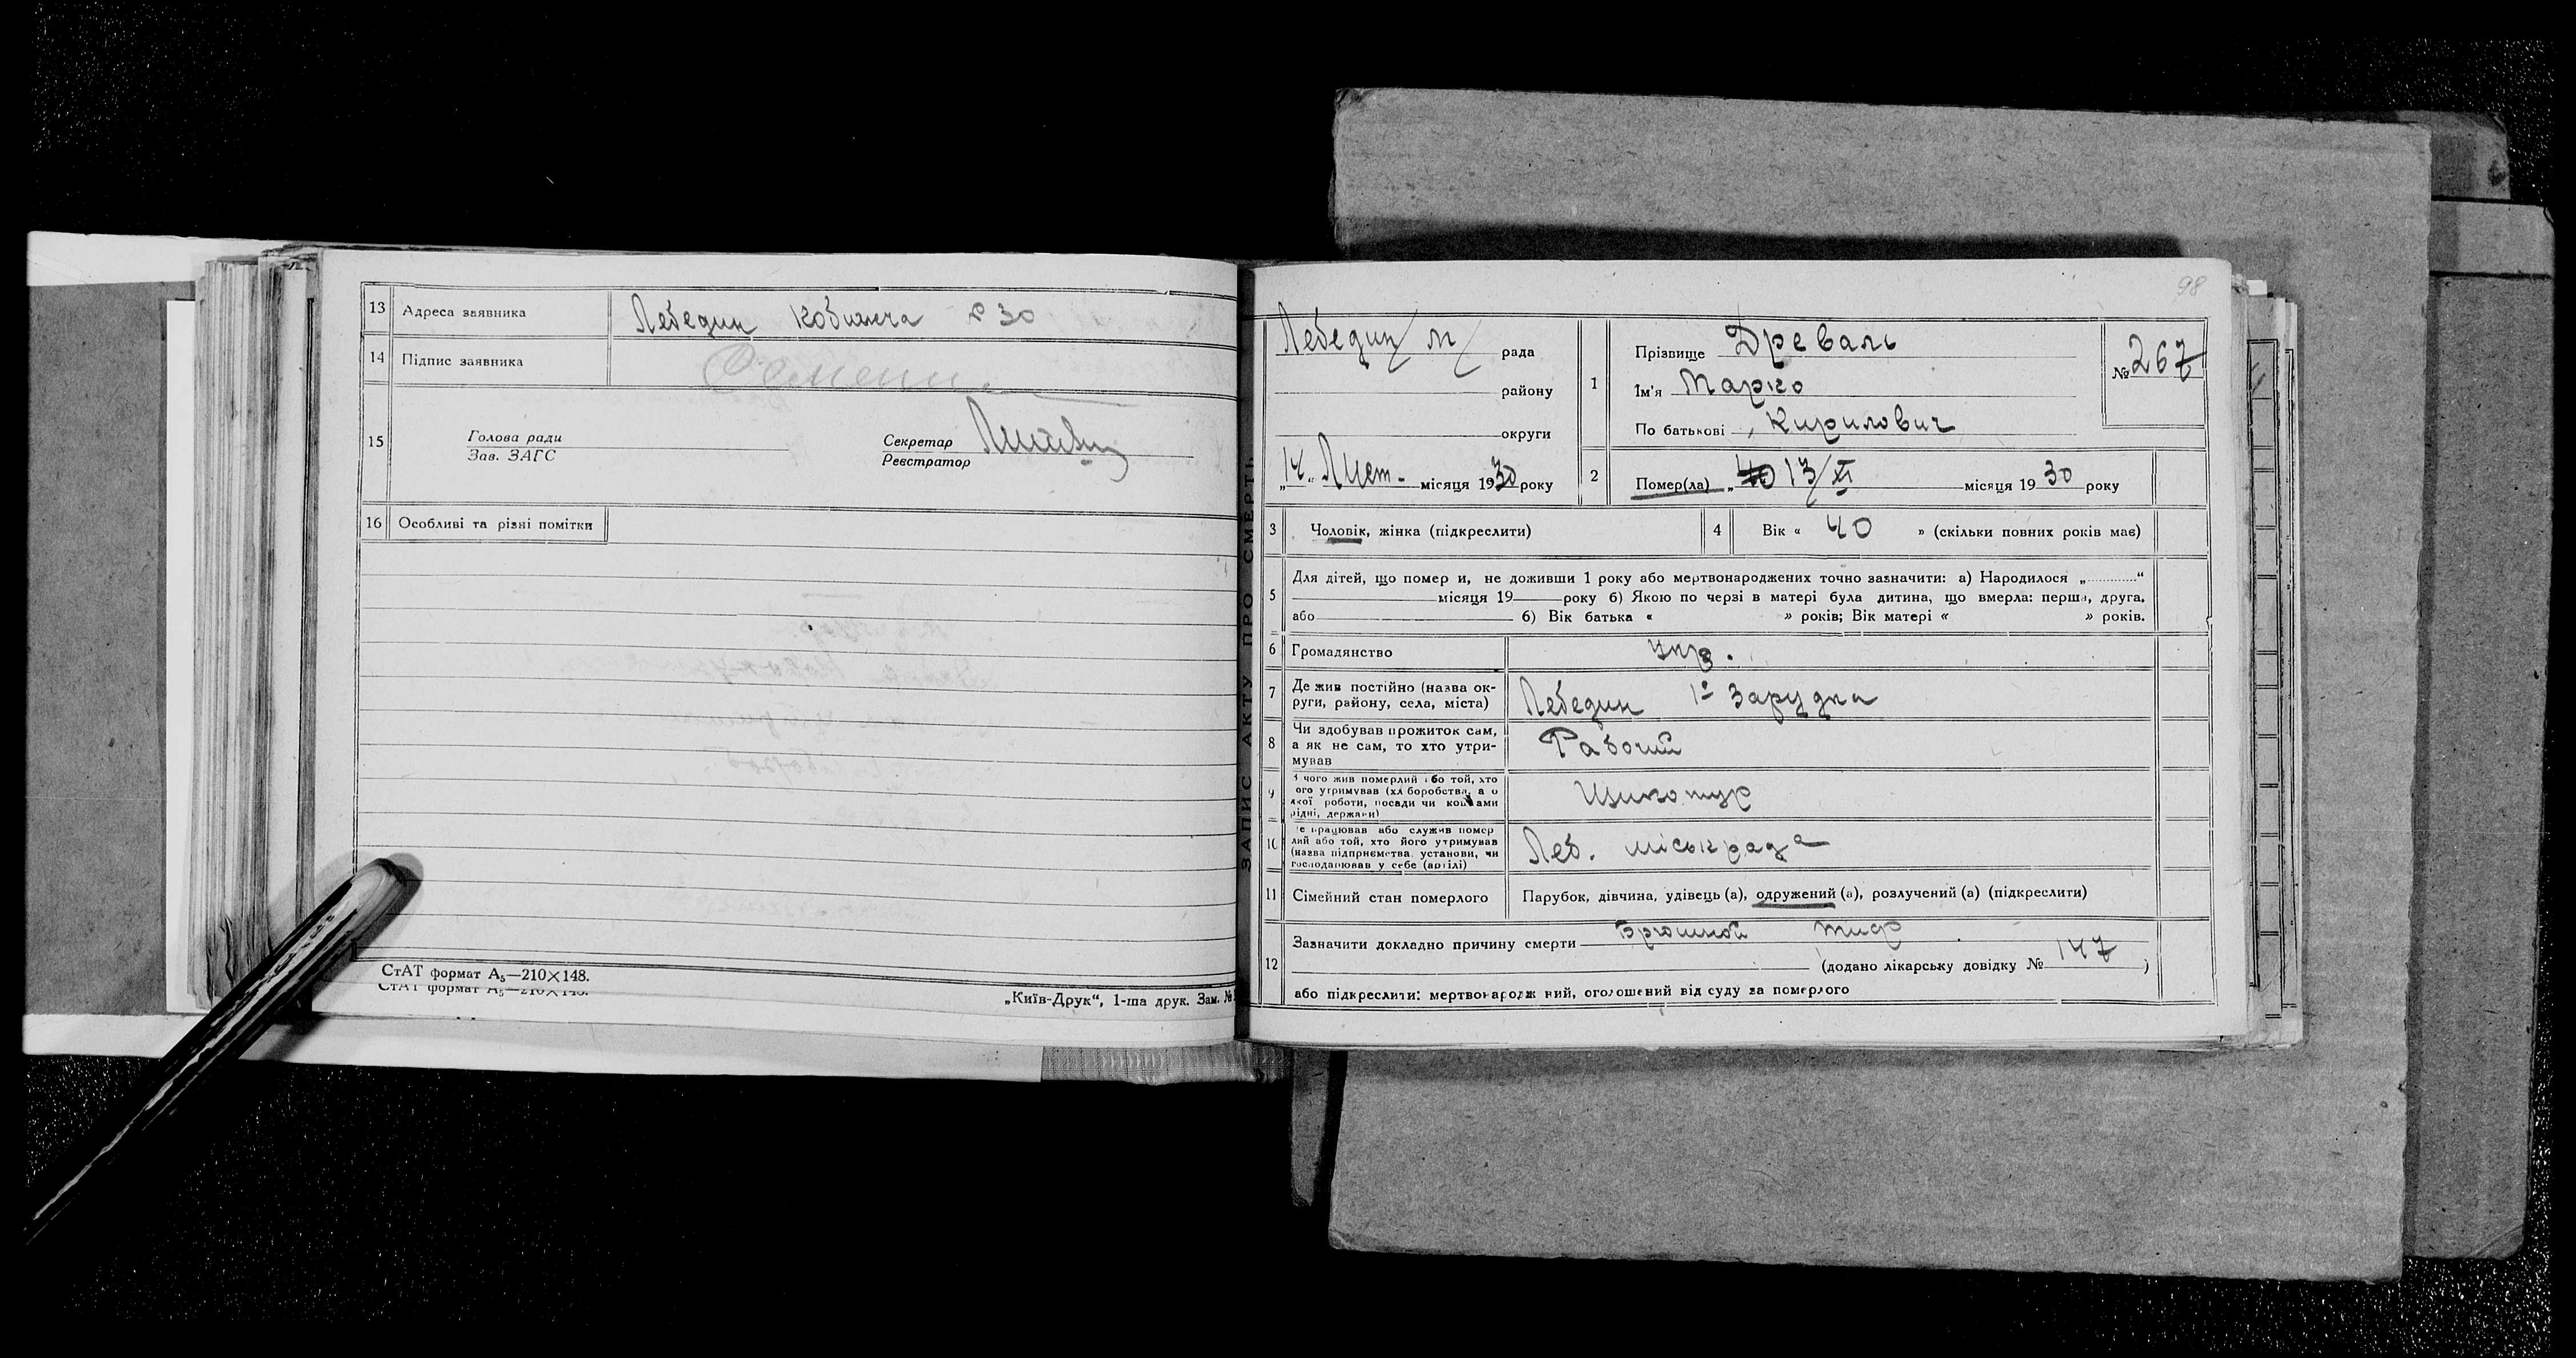 13 Адреса заявника Лебедин Кобижча 30
14 Підпис заявника
15 Голова ради
Зав. ЗАГС
Секретар
Реєстратор
16 Особливі та різні помітки
СтАТ формат А₅—210×148.
СтАТ формат А₅—210×148.
„Київ-Друк“, 1-ша друк. Зам. №
ЗАПИС АКТУ ПРО СМЕРТЬ
98
Лебедин м рада
району
округи
„14“ Лист- місяця 1930 року
1 Прізвище Древаль
Ім'я Марко
По батькові Кирилович
№ 267
2 Помер(ла) „ 13/XI місяця 1930 року
3 Чоловік, жінка (підкреслити)
4 Вік « 40 » (скільки повних років має)
5 Для дітей, що помер и, не доживши 1 року або мертвонароджених точно зазначити: а) Народилося „............“
місяця 19 року б) Якою по черзі в матері була дитина, що вмерла: перша, друга,
або б) Вік батька « » років; Вік матері « » років.
6 Громадянство Укр.
7 Де жив постійно (назва ок-
руги, району, села, міста) Лебедин 1а Зарудка
8 Чи здобував прожиток сам,
а як не сам, то хто утри-
мував Рабочий
9 чого жив померлий або той, хто
ого утримував (хл боробства, а о
якої роботи, посади чи коштами
рідні, держави) Щикотур
10 е працював або служив помер
лий або той, хто його утримував
(назва підприємства, установи, чи
господарював у себе (артілі) Леб. міськрада
11 Сімейний стан померлого Парубок, дівчина, удівець (а), одружений (а), розлучений (а) (підкреслити)
12 Зазначити докладно причину смерти Брюшной тиф
(додано лікарську довідку № 147)
або підкреслити: мертвонародж ний, оголошений від суду за померлого